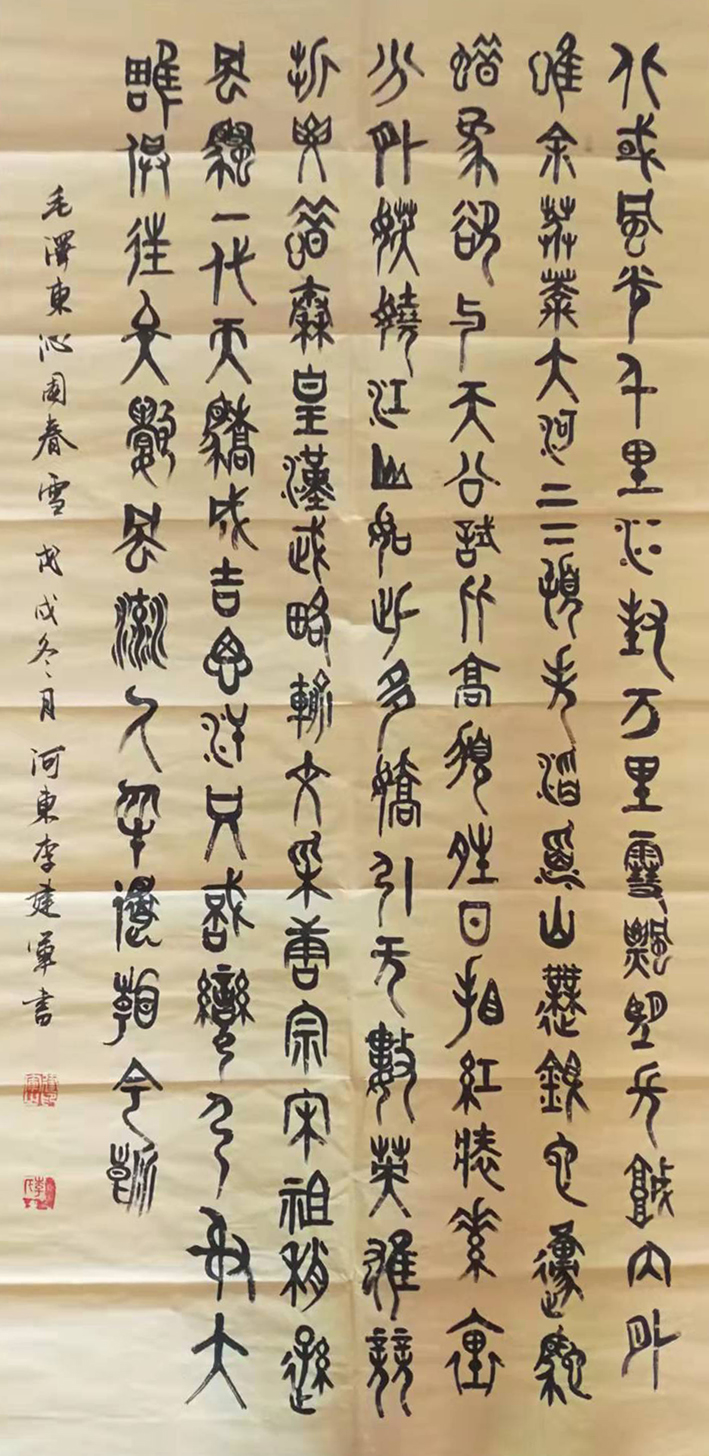 北國風光千里冰封万里雪飄望長城內外
唯余莽莽大河上下頓失滔滔山舞銀它原馳
蜡象欲与天公試比高須晴日看紅裝素裹
分外妖嬈江山如此多嬌引无數英雄競
折腰惜秦皇漢武略輸文采唐宗宋祖稍遜
風騷一代天驕成吉思汗只識彎弓射大
雕俱往矣數風流人物還看今朝
毛澤東沁園春雪戊戌冬月河東李建軍書